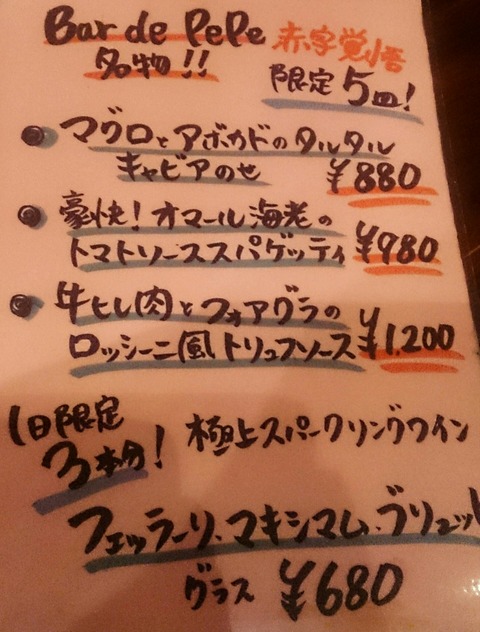 Bar de PePe
名物!!
赤字覚悟
限定5皿!
● マグロとアボカドのタルタル
キャビアのせ ¥880
● 豪快!オマール海老の
トマトソーススパゲッティ ¥980
● 牛ヒレ肉とフォアグラの
ロッシーニ風トリュフソース ¥1,200
1日限定
3本分!
極上スパークリングワイン
フェッラーリ、マキシマム、ブリュット
グラス ¥680